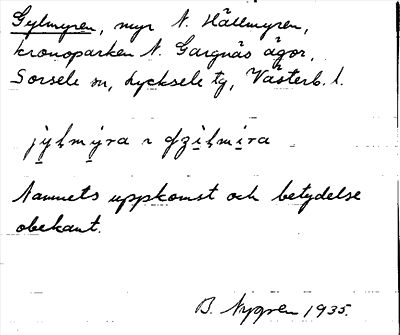 Gylmyren, myr N. Hällmyren,
kronoparken N. Gargnäs ägor,
Sorsele sn, Lycksele tg, Västerb. l.
Namnets uppkomst och betydelse
obekant.
B. Nygren 1935.